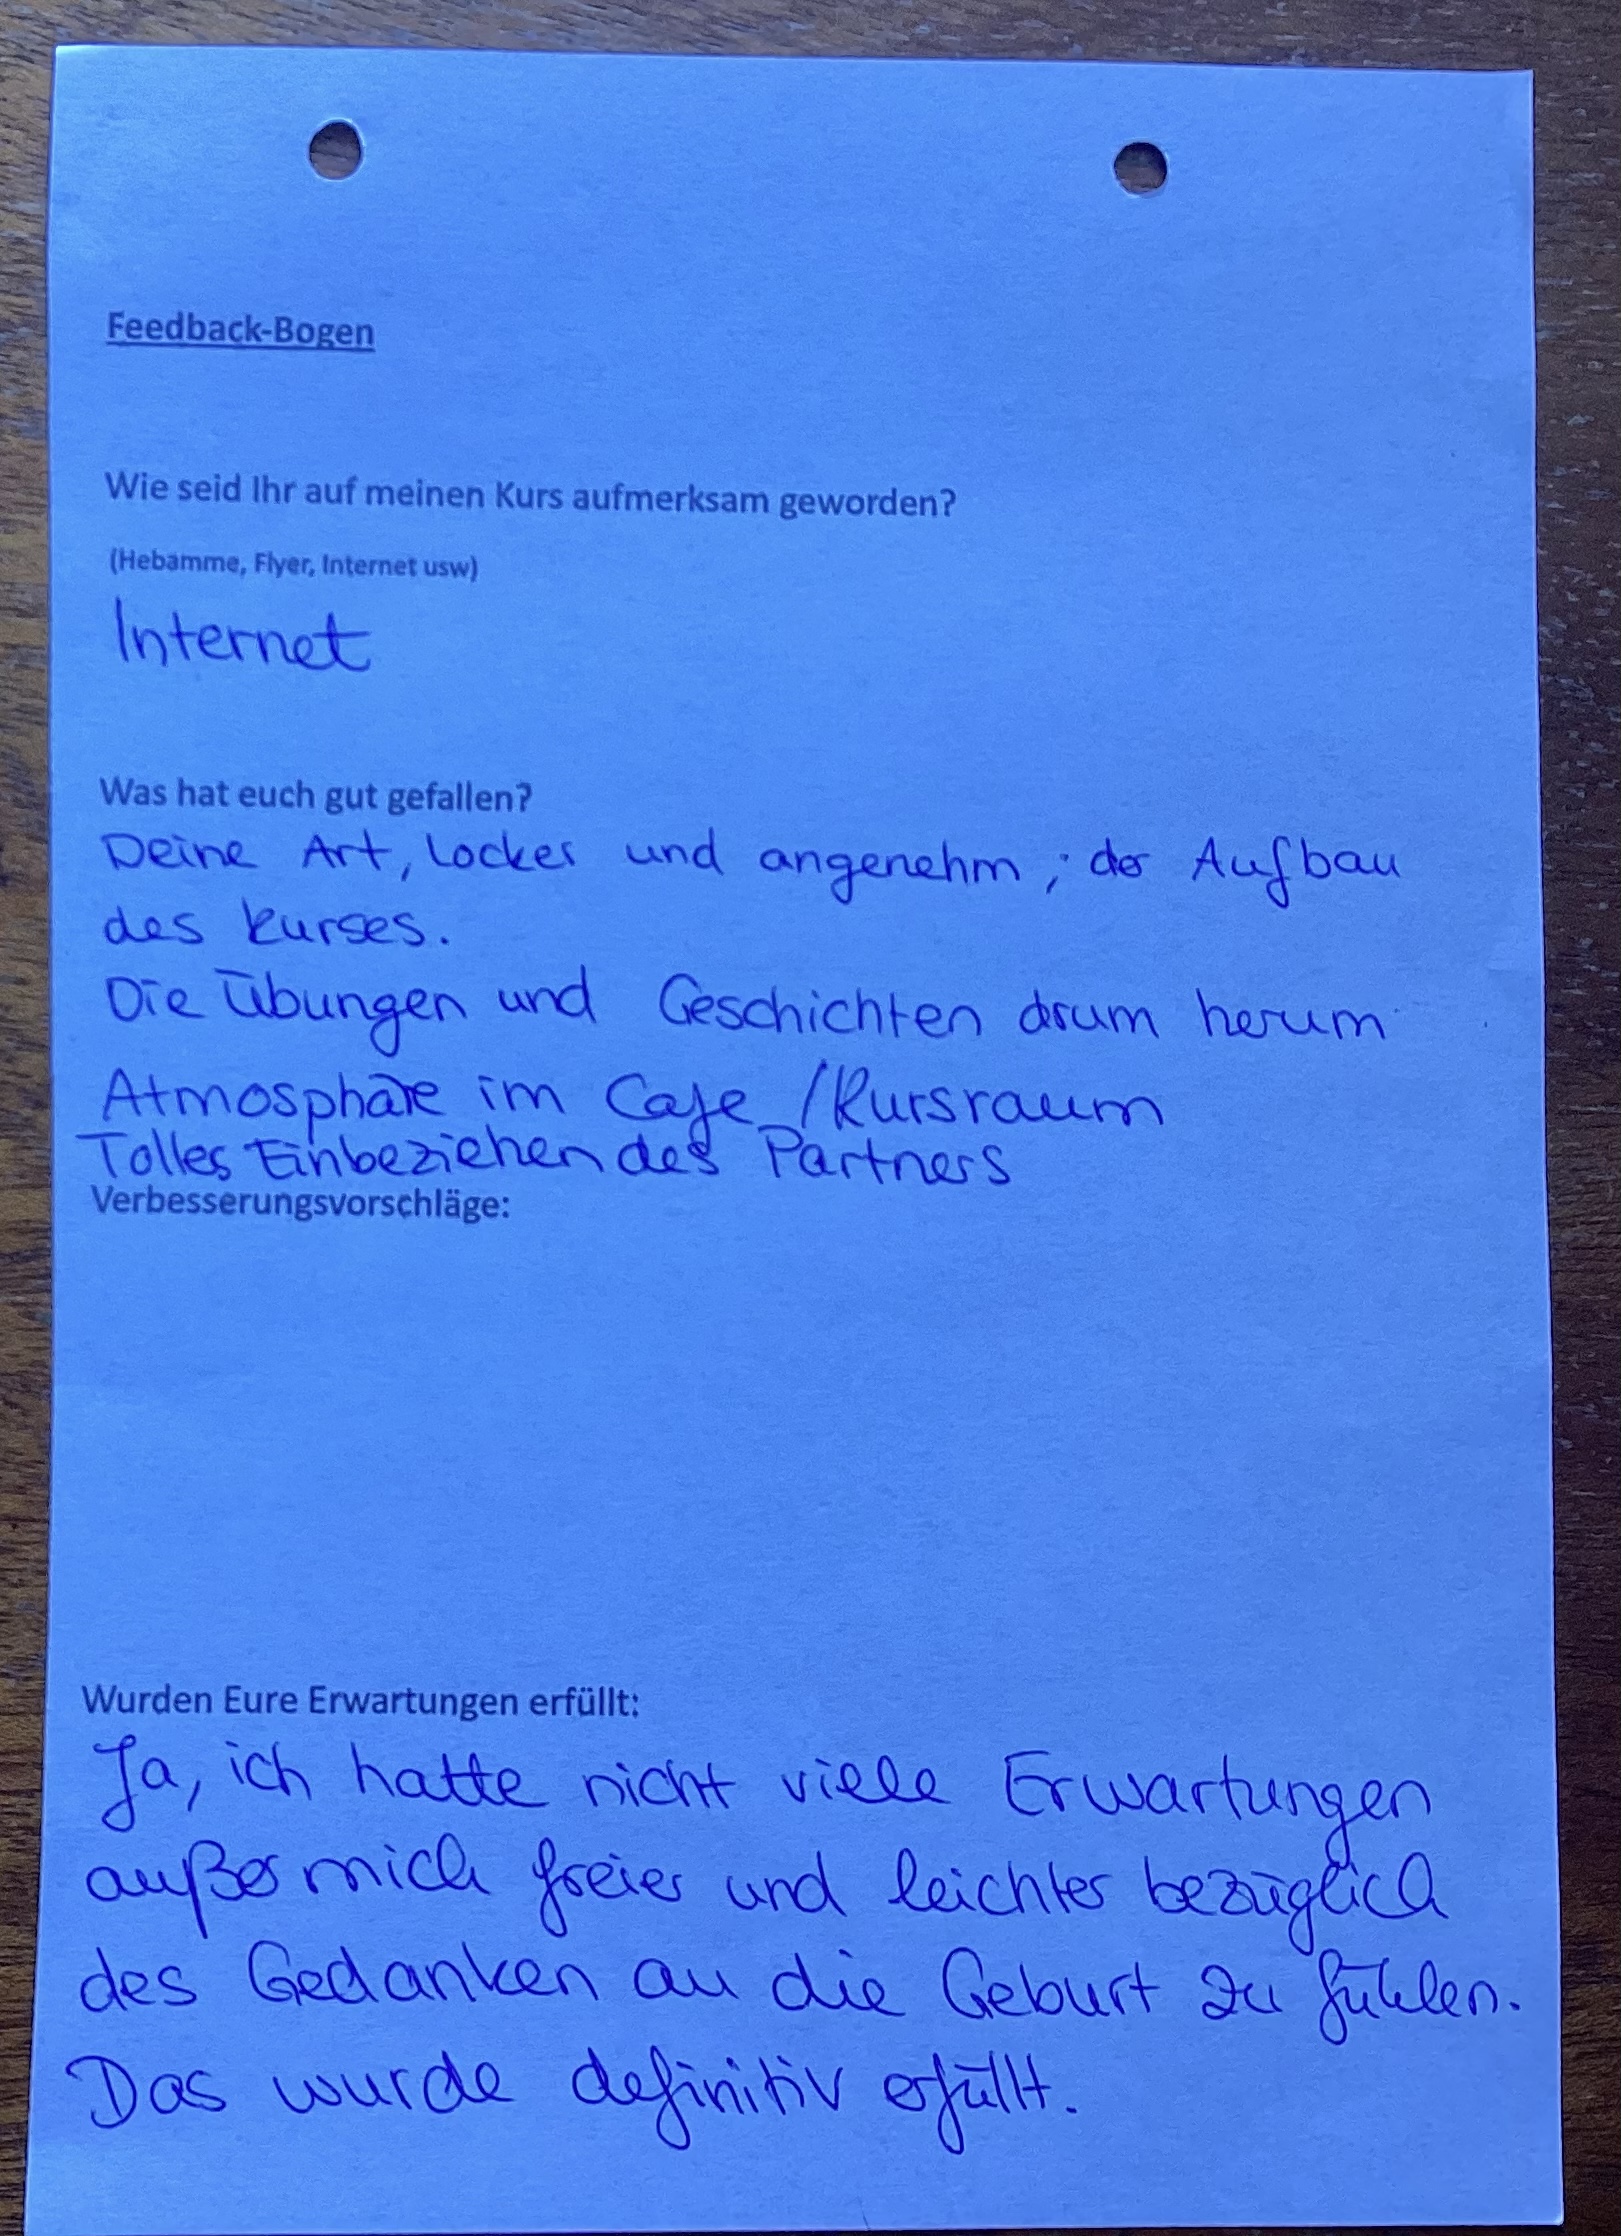 Feedback-Bogen
Wie seid Ihr auf meinen Kurs aufmerksam geworden?
(Hebamme, Flyer, Internet usw)
Internet
Was hat euch gut gefallen?
Deine Art, locker und angenehm ; der Aufbau
des Kurses.
Die Übungen und Geschichten drum herum
Atmosphäre im Cafe /Kursraum
Tolles Einbeziehen des Partners
Verbesserungsvorschläge:
Wurden Eure Erwartungen erfüllt:
Ja, ich hatte nicht viele Erwartungen
außer mich freier und leichter bezüglich
des Gedanken an die Geburt zu fühlen.
Das wurde definitiv erfüllt.